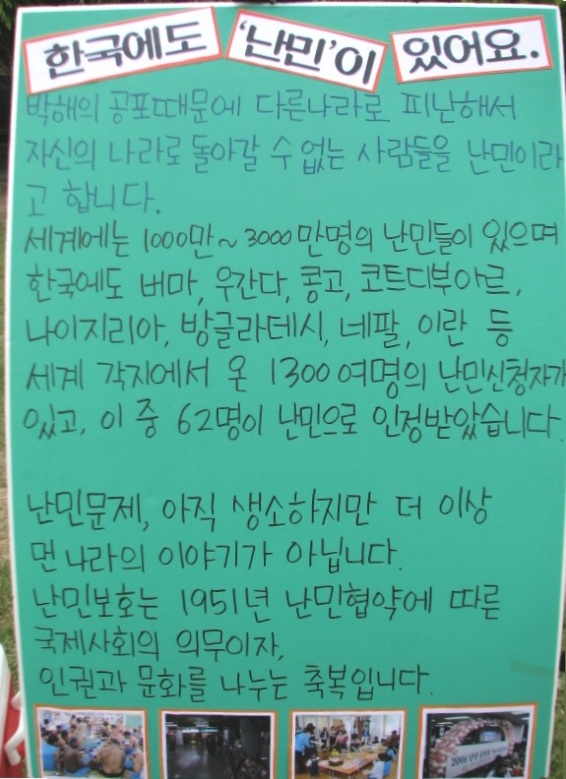 한국에도 '난민'이 있어요.
박해의 공포때문에 다른나라로 피난해서
자신의 나라로 돌아갈 수 없는 사람들을 난민이라
고 합니다.
세계에는 1000만~3000만명의 난민들이 있으며
한국에도 버마, 우간다, 콩고, 코트디부아르,
나이지리아, 방글라데시, 네팔, 이란 등
세계 각지에서 온 1300여명의 난민신청자가
있고, 이 중 62명이 난민으로 인정받았습니다.
난민문제, 아직 생소하지만 더 이상
먼 나라의 이야기가 아닙니다.
난민보호는 1951년 난민협약에 따른
국제사회의 의무이자,
인권과 문화를 나누는 축복입니다.
2006